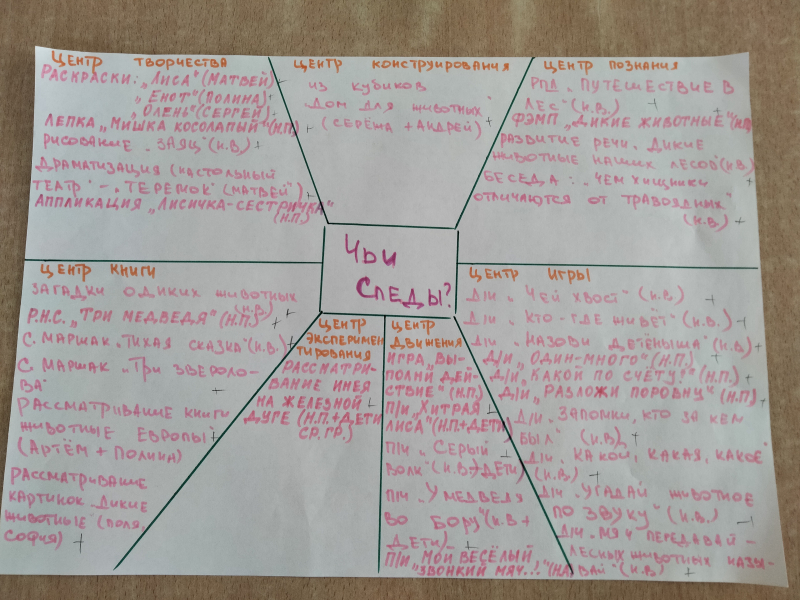 ЦЕНТР ТВОРЧЕСТВА
РАСКРАСКИ: „ЛИСА" (МАТВЕЙ)
„ЕНОТ" (ПОЛИНА)
„ОЛЕНЬ" (СЕРГЕЙ)
ЛЕПКА „МИШКА КОСОЛАПЫЙ" (Н.П.)
РИСОВАНИЕ „ЗАЯЦ" (Н.В.)
ДРАМАТИЗАЦИЯ (НАСТОЛЬНЫЙ
ТЕАТР - „ТЕРЕМОК" (МАТВЕЙ)
АППЛИКАЦИЯ „ЛИСИЧКА-СЕСТРИЧКА"
(Н.П.)
ЦЕНТР КОНСТРУИРОВАНИЯ
ИЗ КУБИКОВ
„ДОМ ДЛЯ ЖИВОТНЫХ"
(СЕРЁЖА + АНДРЕЙ)
ЦЕНТР ПОЗНАНИЯ
РПД „ПУТЕШЕСТВИЕ В
ЛЕС" (Н.В.)
ФЭМП „ДИКИЕ ЖИВОТНЫЕ"
РАЗВИТИЕ РЕЧИ „ДИКИЕ
ЖИВОТНЫЕ НАШИХ ЛЕСОВ" (Н.В.)
БЕСЕДА: „ЧЕМ ХИЩНИКИ
ОТЛИЧАЮТСЯ ОТ ТРАВОЯДНЫХ"
(Н.В.)
ЧЬИ
СЛЕДЫ?
ЦЕНТР КНИГИ
ЗАГАДКИ О ДИКИХ ЖИВОТНЫХ
(Н.В.)
Р.Н.С. „ТРИ МЕДВЕДЯ" (Н.П.)
С. МАРШАК „ТИХАЯ СКАЗКА" (Н.В.)
С. МАРШАК „ТРИ ЗВЕРОЛО-
ВА"
РАССМАТРИВАНИЕ КНИГИ
ЖИВОТНЫЕ ЕВРОПЫ
(АРТЁМ + ПОЛИНА)
РАССМАТРИВАНИЕ
КАРТИНОК „ДИКИЕ
ЖИВОТНЫЕ" (ПОЛЯ,
СОФИЯ)
ЦЕНТР
ЭКСПЕРИМЕН
ТИРОВАНИЯ
РАССМАТРИ-
ВАНИЕ ИНЕЯ
НА ЖЕЛЕЗНОЙ
ДУГЕ (Н.П.+ДЕТИ
СР. ГР.)
ЦЕНТР
ДВИЖЕНИЯ
ИГРА „ВЫ-
ПОЛНИ ДЕЙ-
СТВИЕ" (Н.П.)
П/И „ХИТРАЯ
ЛИСА" (Н.П.+ДЕТИ)
П/И „СЕРЫЙ
ВОЛК" (Н.В.+ДЕТИ)
П/И „У МЕДВЕДЯ
ВО БОРУ" (Н.В+
ДЕТИ)
П/И „МОЙ ВЕСЁЛЫЙ,
ЗВОНКИЙ МЯЧ..!"
ЦЕНТР ИГРЫ
Д/И „ЧЕЙ ХВОСТ" (Н.В.)
Д/И „КТО-ГДЕ ЖИВЁТ" (Н.В.)
Д/И „НАЗОВИ ДЕТЁНЫША" (Н.В.)
Д/И „ОДИН-МНОГО" (Н.П.)
Д/И „КАКОЙ ПО СЧЁТУ?" (Н.П.)
Д/И „РАЗЛОЖИ ПОРОВНУ" (Н.П)
Д/И „ЗАПОМНИ, КТО ЗА КЕМ
БЫЛ" (Н.В.)
Д/И „КАКОЙ, КАКАЯ, КАКОЕ"
(Н.В.)
Д/И „УГАДАЙ ЖИВОТНОЕ
ПО ЗВУКУ" (Н.В.)
Д/И „МЯЧ ПЕРЕДАВАЙ -
ЛЕСНЫХ ЖИВОТНЫХ НАЗЫ-
ВАЙ" (Н.В.)